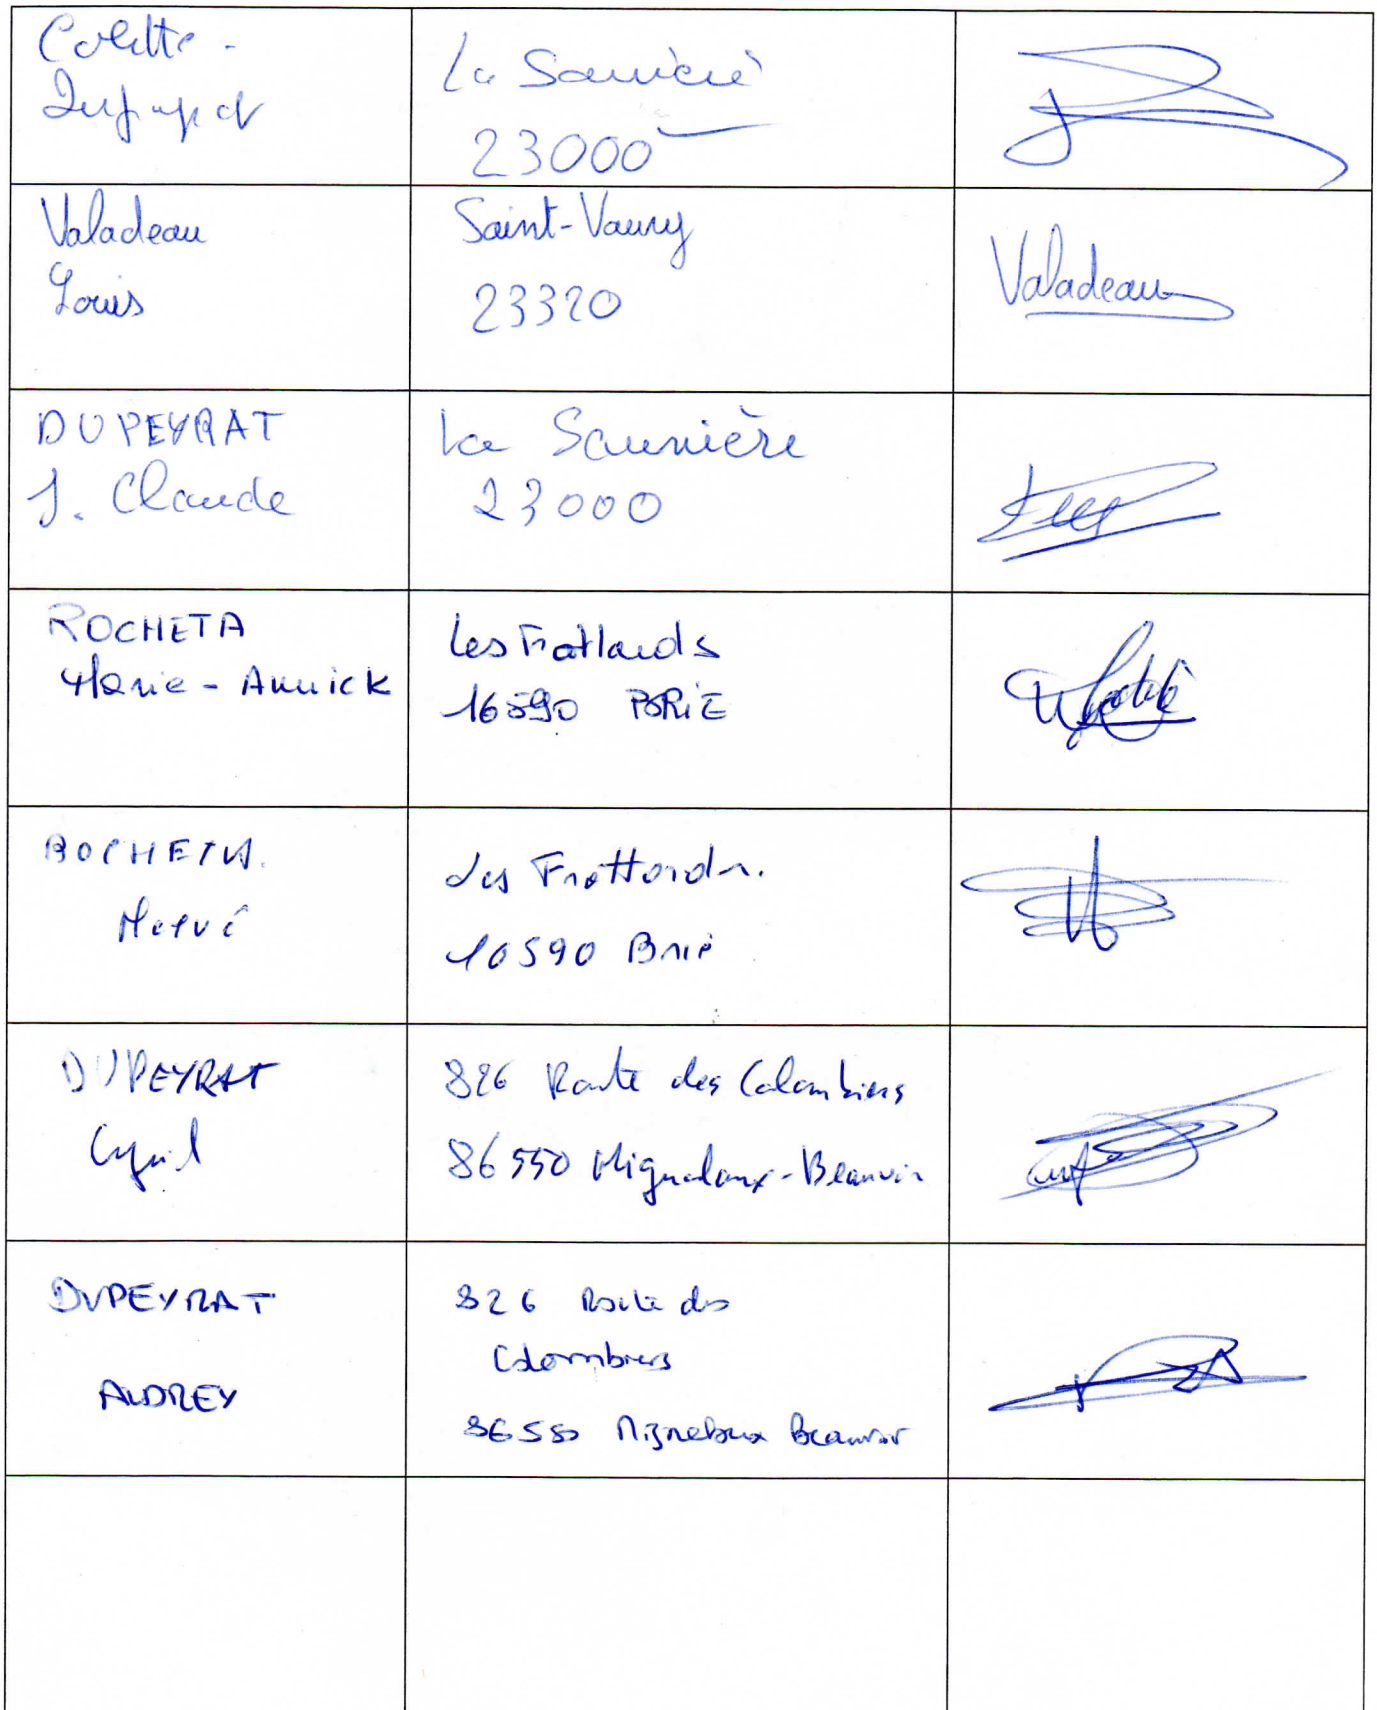 Colette
La Saunière
23000
Valadeau
Louis
Saint-Vaury
23320
Valadeau
DUPEYRAT
J. Claude
La Saunière
23000
ROCHETA
Marie - Annick
Les Frottards
16590 BRIE
ROCHETA.
Hervé
Les Frottards.
16590 Brie
DUPEYRAT
Cyril
826 Route des Colombiers
86550 Mignaloux-Beauvoir
DUPEYRAT
AUDREY
826 Route des
Colombiers
86550 Mignaloux Beauvoir